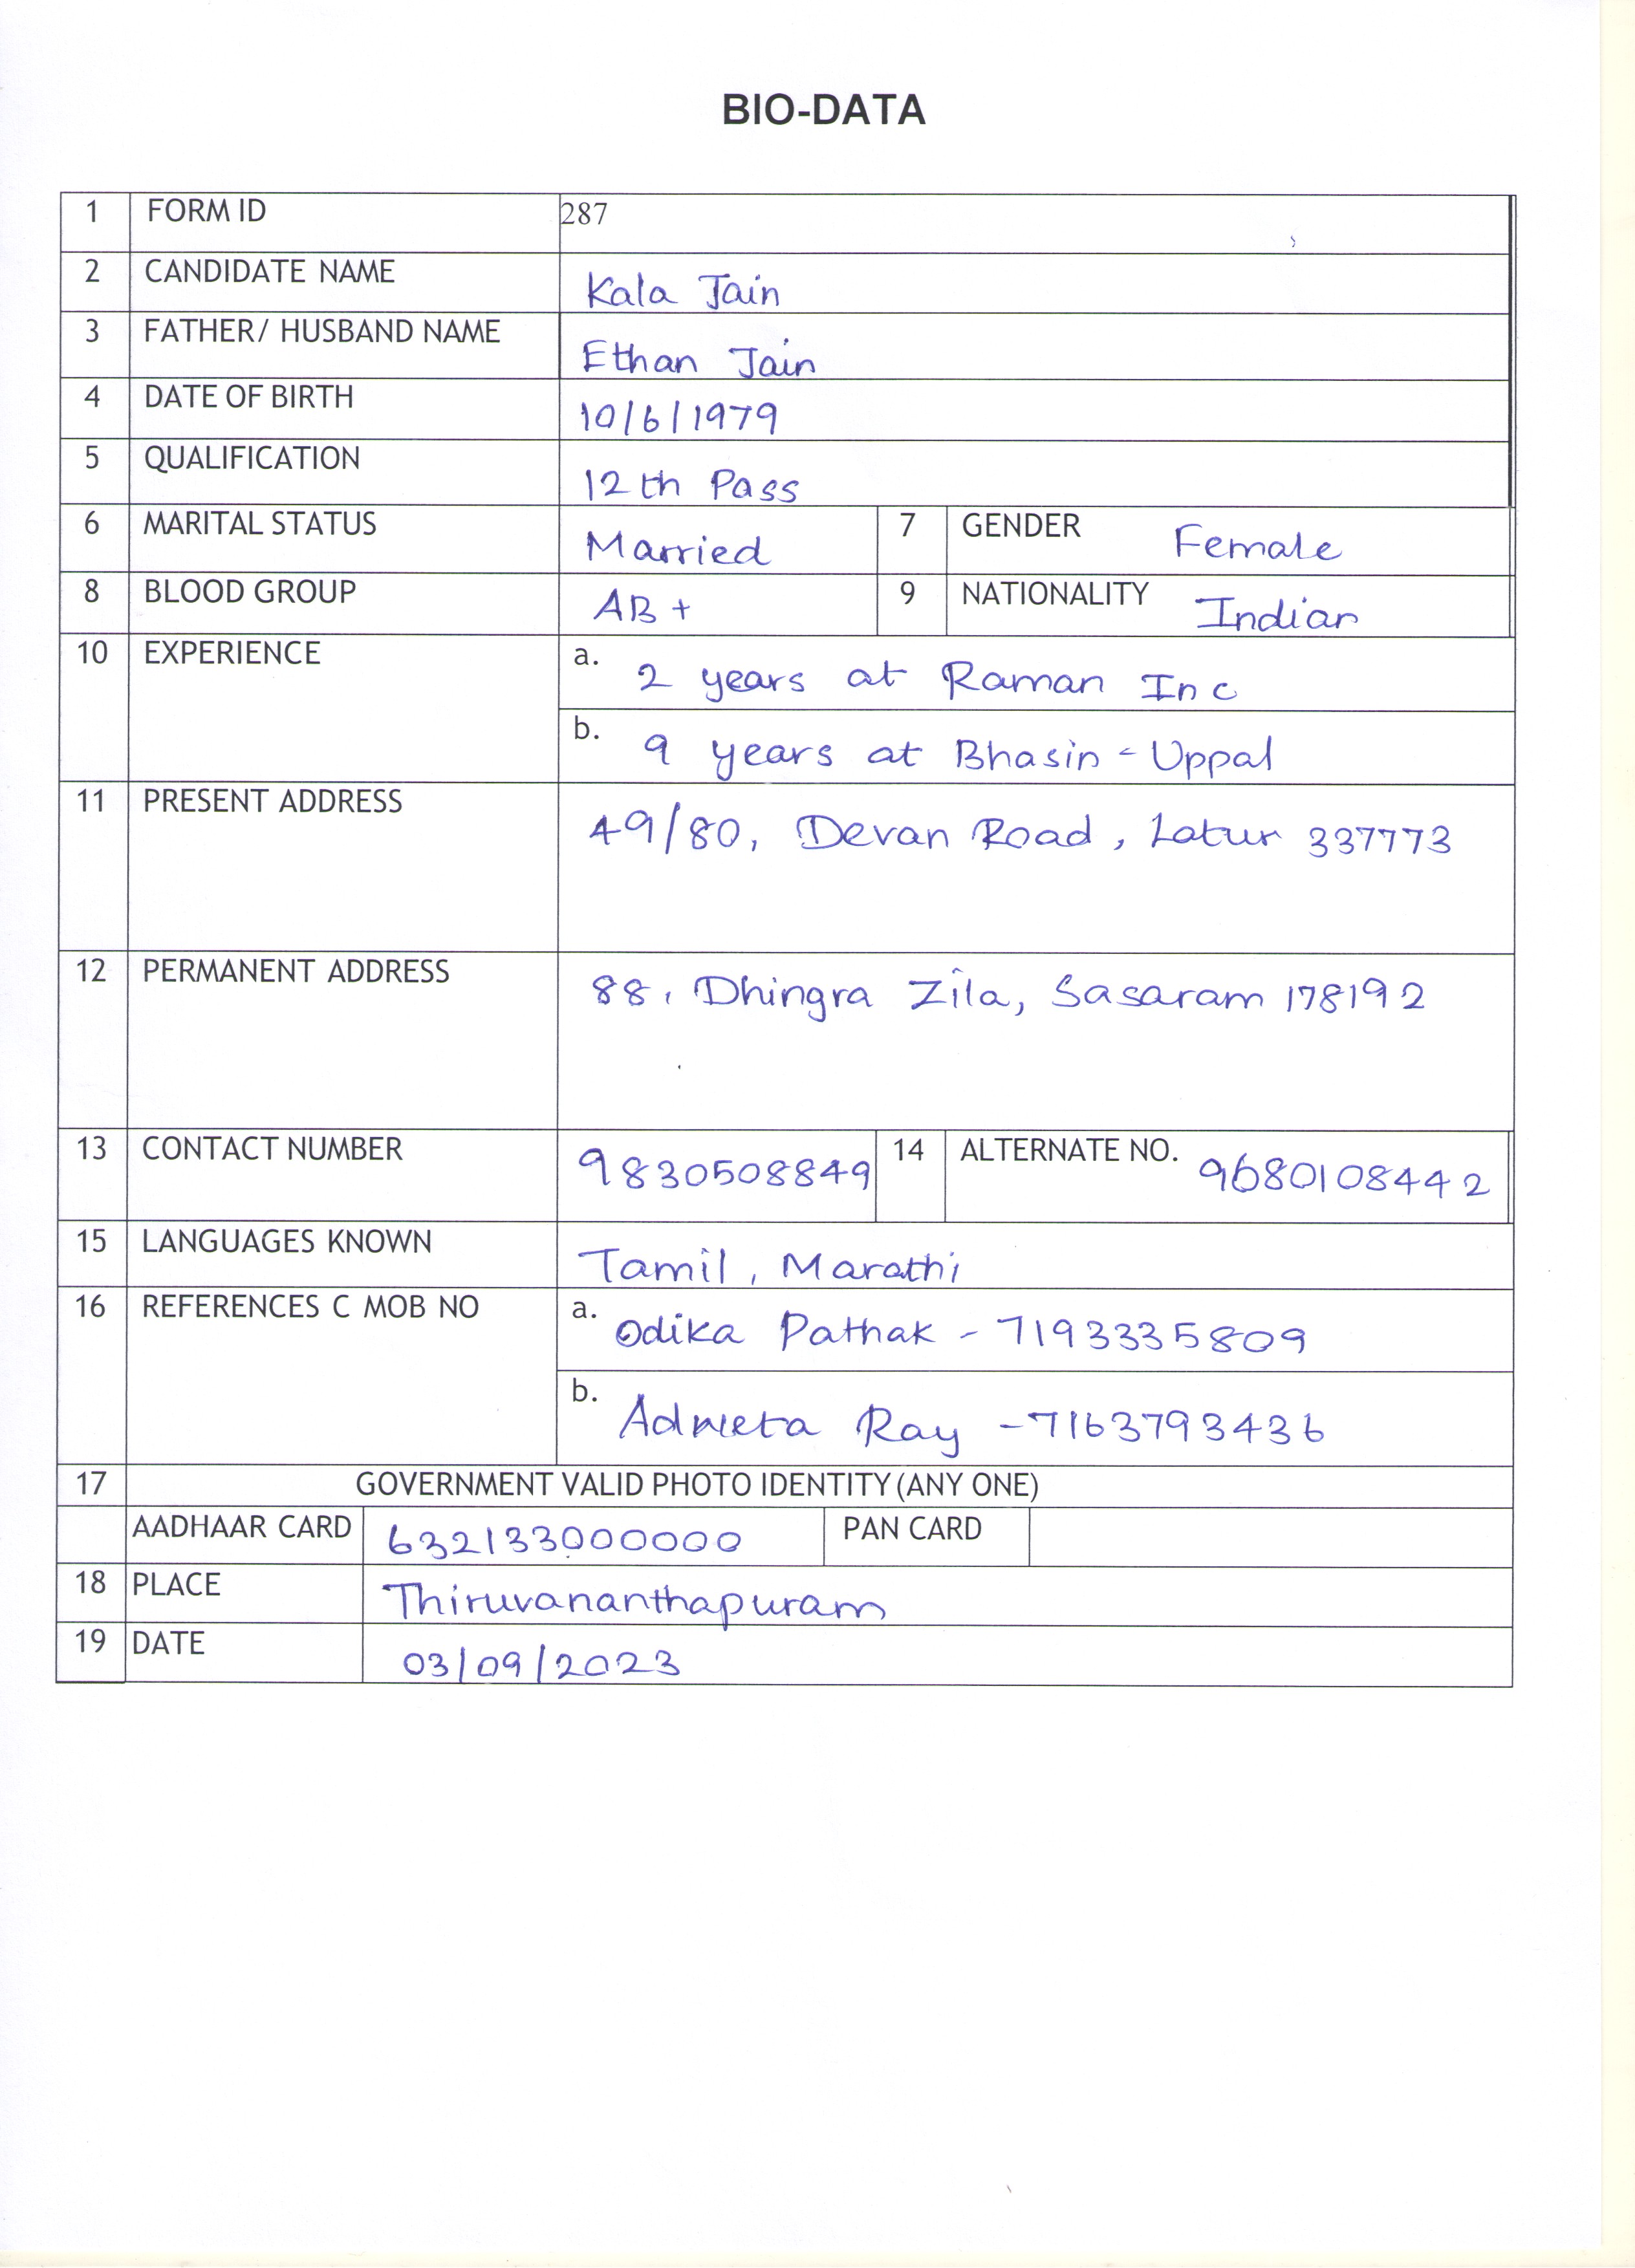 BIO-DATA
1 FORM ID 287
2 CANDIDATE NAME Kala Jain
3 FATHER/ HUSBAND NAME Ethan Jain
4 DATE OF BIRTH 10/6/1979
5 QUALIFICATION 12th Pass
6 MARITAL STATUS Married 7 GENDER Female
8 BLOOD GROUP AB+ 9 NATIONALITY Indian
10 EXPERIENCE a. 2 years at Raman Inc
b. 9 years at Bhasin-Uppal
11 PRESENT ADDRESS 49/80, Devan Road, Latur 337773
12 PERMANENT ADDRESS 88, Dhingra Zila, Sasaram 178192
13 CONTACT NUMBER 9830508849 14 ALTERNATE NO. 9680108442
15 LANGUAGES KNOWN Tamil, Marathi
16 REFERENCES C MOB NO a. Odika Pathak - 7193335809
b. Ray - 7163793436
17 GOVERNMENT VALID PHOTO IDENTITY (ANY ONE)
AADHAAR CARD 632133000000 PAN CARD
18 PLACE Thiruvananthapuram
19 DATE 03/09/2023